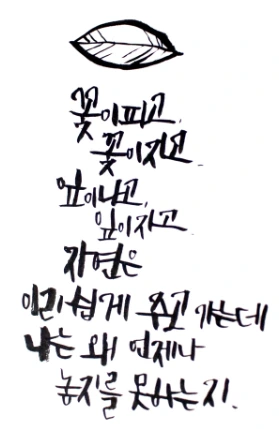 꽃이피고,
꽃이지고.
잎이나고,
잎이지고
자연은
이리 쉽게 주고 가는데
나는 왜 언제나
놓지를 못하는지.